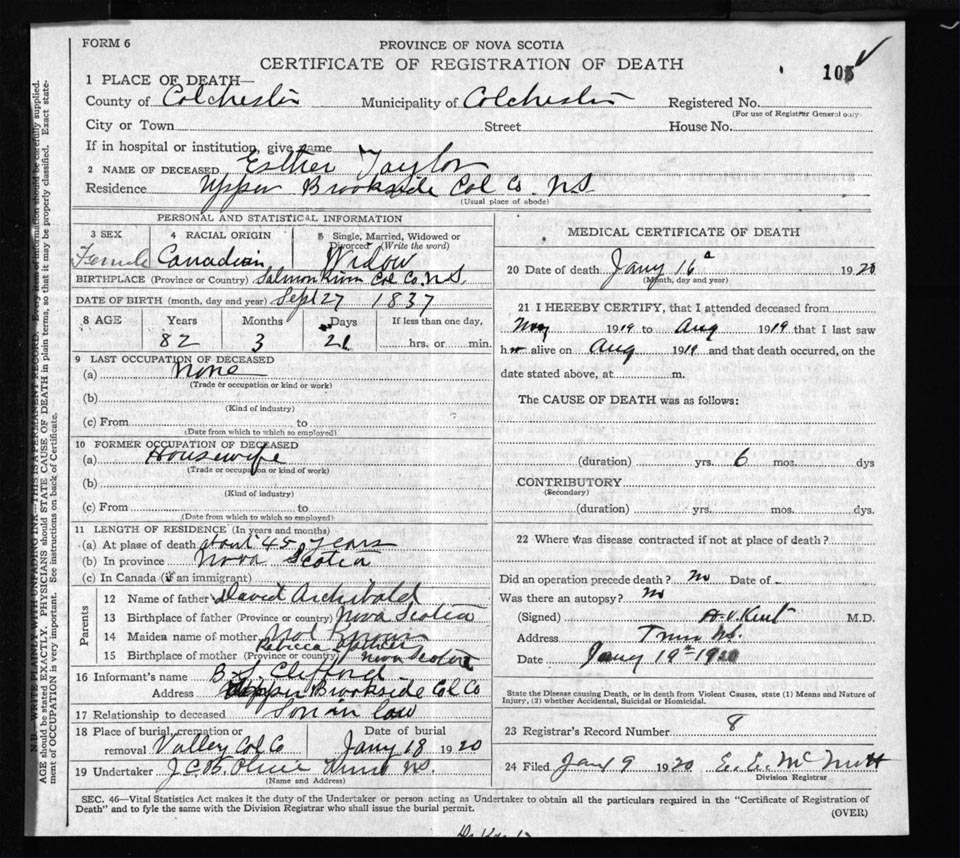 FORM 6
PROVINCE OF NOVA SCOTIA
CERTIFICATE OF REGISTRATION OF DEATH
105
1 PLACE OF DEATH—
County of Colchester Municipality of Colchester Registered No.
(For use of Registrar General only)
City or Town Street House No.
If in hospital or institution, give name
2 NAME OF DECEASED Esther Taylor
Residence Upper Brookside Col Co. NS
(Usual place of abode)
PERSONAL AND STATISTICAL INFORMATION
3 SEX 4 RACIAL ORIGIN 5 Single, Married, Widowed or Divorced (Write the word)
Female Canadian Widow
BIRTHPLACE (Province or Country) Salmon River Col Co. N.S.
DATE OF BIRTH (month, day and year) Sept 27 1837
8 AGE Years Months Days If less than one day,
82 3 21 hrs. or min.
9 LAST OCCUPATION OF DECEASED
(a) None
(Trade or occupation or kind or work)
(b)
(Kind of industry)
(c) From to
(Date from which to which so employed)
10 FORMER OCCUPATION OF DECEASED
(a) Housewife
(Trade or occupation or kind of work)
(b)
(Kind of industry)
(c) From to
(Date from which to which so employed)
11 LENGTH OF RESIDENCE (In years and months)
(a) At place of death about 45 years
(b) In province Nova Scotia
(c) In Canada (if an immigrant)
Parents
12 Name of father David Archibald
13 Birthplace of father (Province or country) Nova Scotia
14 Maiden name of mother Not Known
Rebecca
15 Birthplace of mother (Province or country) Nova Scotia
16 Informant's name Clifford
Address Upper Brookside Col Co
17 Relationship to deceased Son in law
18 Place of burial, cremation or removal Valley Col Co Date of burial Jany 18 1920
19 Undertaker J.C.B. Olive Truro NS.
(Name and Address)
MEDICAL CERTIFICATE OF DEATH
20 Date of death Jany 16 1920
(Month, day and year)
21 I HEREBY CERTIFY, that I attended deceased from
1919 to Aug 1919 that I last saw
her alive on Aug 1919 and that death occurred, on the
date stated above, at m.
The CAUSE OF DEATH was as follows:
(duration) yrs. 6 mos. dys
CONTRIBUTORY
(Secondary)
(duration) yrs. mos. dys.
22 Where was disease contracted if not at place of death?
Did an operation precede death? no Date of
Was there an autopsy? no
(Signed) H.V. Kent M.D.
Address Truro NS.
Date Jany 19th 1920
State the Disease causing Death, or in death from Violent Causes, state (1) Means and Nature of
Injury, (2) whether Accidental, Suicidal or Homicidal.
23 Registrar's Record Number 8
24 Filed Jany 9 1920 E. E. McNutt
Division Registrar
SEC. 46—Vital Statistics Act makes it the duty of the Undertaker or person acting as Undertaker to obtain all the particulars required in the "Certificate of Registration of
Death" and to fyle the same with the Division Registrar who shall issue the burial permit.
(OVER)
N.B.—WRITE PLAINLY, WITH UNFADING INK—THIS IS A PERMANENT RECORD. Every item of information should be carefully supplied.
AGE should be stated EXACTLY. PHYSICIANS should STATE CAUSE OF DEATH in plain terms, so that it may be properly classified. Exact state-
ment of OCCUPATION is very important. See instructions on back of Certificate.